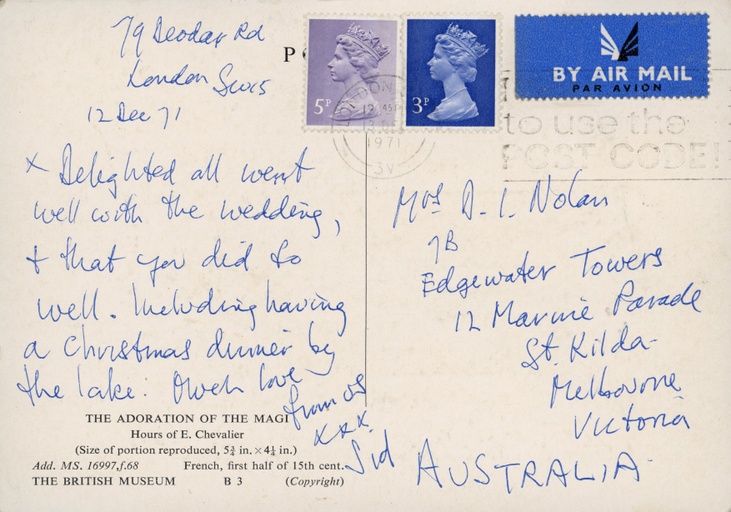 79 Deodar Rd
London SW15
12 Dec 71
x Delighted all went
well with the wedding,
+ that you did so
well. Including having
a Christmas dinner by
the lake. Much love
from us
xxx
Sid
THE ADORATION OF THE MAGI
Hours of E. Chevalier
(Size of portion reproduced, 5¾ in. × 4¼ in.)
Add. MS. 16997, f.68 French, first half of 15th cent.
THE BRITISH MUSEUM B 3 (Copyright)
P
5P
3P
LONDON
12 45 PM
1971
3V
BY AIR MAIL
PAR AVION
to use the
POST CODE!
Mrs D. I. Nolan
7B
Edgewater Towers
12 Marine Parade
St. Kilda
Melbourne
Victoria
AUSTRALIA